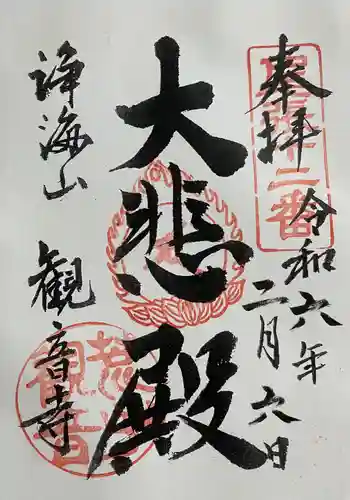 奉拝
令和六年
二月六日
大悲殿
浄海山
観音寺